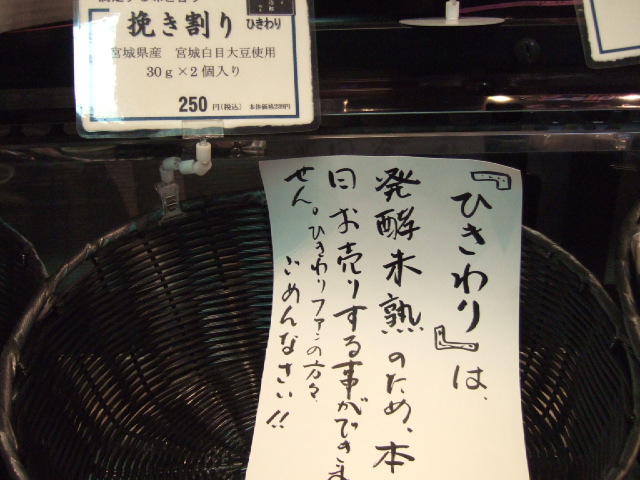 挽き割り ひきわり
宮城県産 宮城白目大豆使用
30g×2個入り
250円(税込) 本体価格239円
『ひきわり』は、
発酵未熟のため、本
日お売りする事ができま
せん。ひきわりファンの方々、
ごめんなさい!!